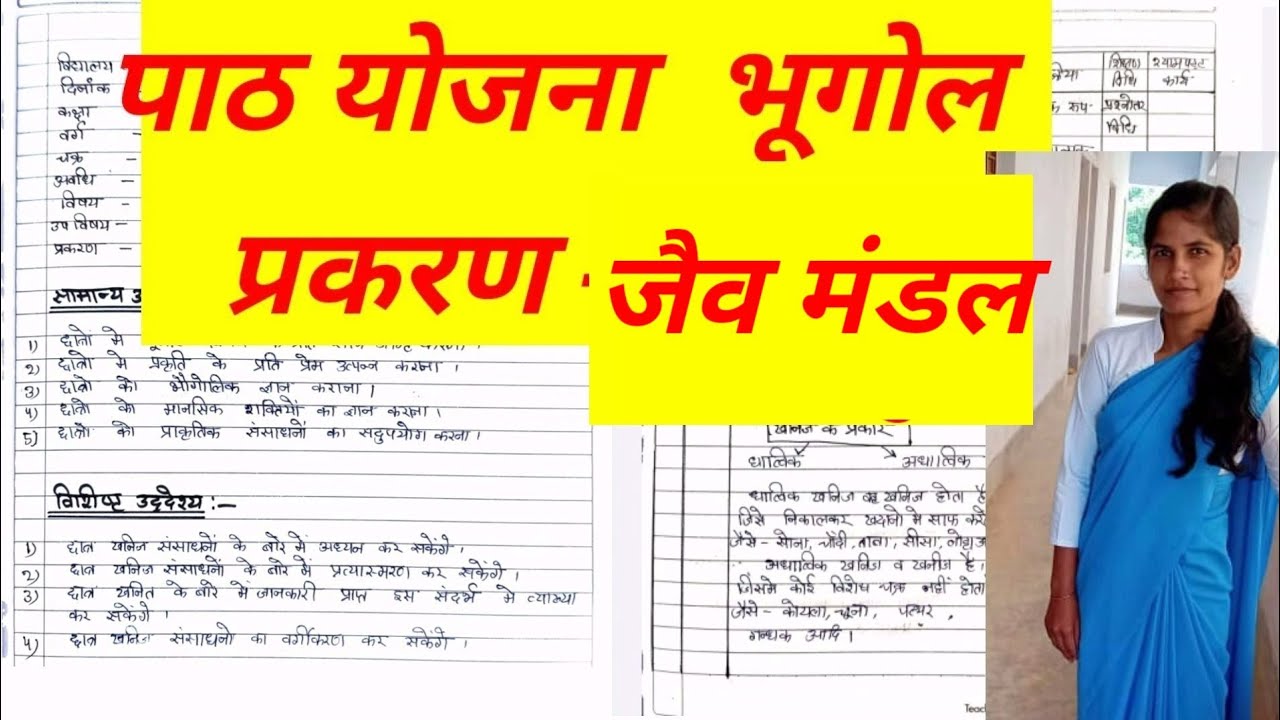 पाठ योजना भूगोल
प्रकरण -
जैव मंडल
विद्यालय
दिनांक -
कक्षा
वर्ग -
चक्र -
अवधि -
विषय -
उप विषय -
प्रकरण -
सामान्य
1) छात्रों में
2) छात्रों मे प्रकृति के प्रति प्रेम उत्पन्न करना ।
3) छात्रों को भौगोलिक ज्ञान कराना ।
4) छात्रों को मानसिक शक्तियों का ज्ञान कराना ।
5) छात्रों को प्राकृतिक संसाधनों का सदुपयोग करना ।
विशिष्ट उद्देश्य :-
1) छात्र खनिज संसाधनों के बारे में अध्यन कर सकेंगे ।
2) छात्र खनिज संसाधनों के बारे में प्रत्यास्मरण कर सकेंगे ।
3) छात्र खनित के बारे में जानकारी प्राप्त इस संदर्भ मे व्याख्या
कर सकेंगे ।
4) छात्र खनिज संसाधनो का वर्गीकरण कर सकेंगे ।
शिक्षण विधि
श्यामपट्ट कार्य
प्रश्नोतर
विधि
खनिज के प्रकार
धात्विक अधात्विक
धात्विक खनिज वह खनिज होता है
जिसे निकालकर खदानो मे साफ करते
जैसे - सोना, चाँदी, तांबा, सीसा,
अधात्विक खनिज व खनीज है,
जिसमे कोई विरोध चक्र नहीं होता
जैसे - कोयला, चूना, पत्थर,
गन्धक आदि ।